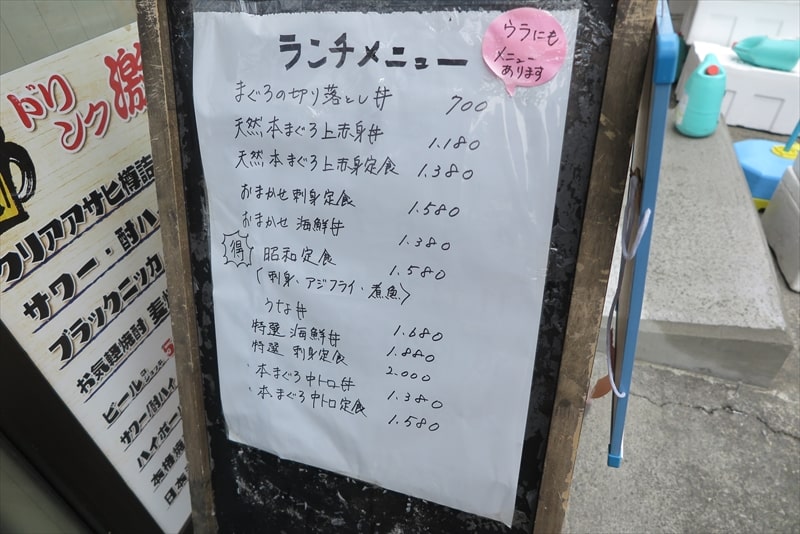 ランチメニュー
ウラにも
メニュー
あります
まぐろの切り落とし丼 700
天然本まぐろ上赤身丼 1.180
天然本まぐろ上赤身定食 1.380
おまかせ刺身定食 1.580
おまかせ海鮮丼 1.380
得 昭和定食 1.580
(刺身、アジフライ、煮魚)
うな丼 1.680
特選 海鮮丼 1.880
特選 刺身定食 2.000
・本まぐろ中トロ丼 1.380
・本まぐろ中トロ定食 1.580
ドリンク激
クリアアサヒ樽詰
サワー・酎ハ
ブラックニッカ
お気軽焼酎 麦
ビール
サワー/酎ハイ
ハイボー